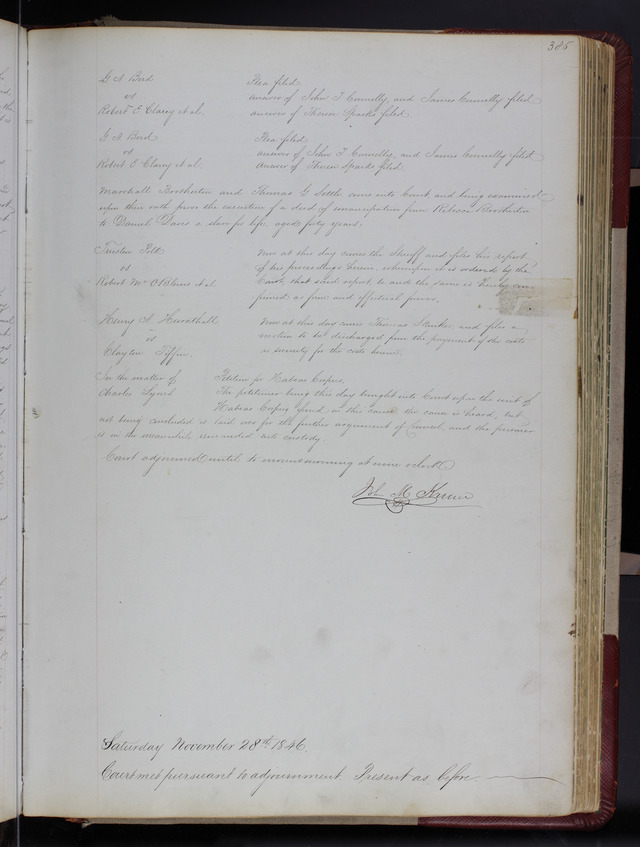 385
G A Bird Plea filed
vs answer of John T Connelly, and James Connelly filed
Robert E Clary et al. answer of Theron Sparks filed
G A Bird Plea filed
vs answer of John T Connelly, and James Connelly filed
Robert E Clary et al. answer of Theron Sparks filed
Marshall Brotherton and Thomas G Settle come into Court, and being examined
upon their oath prove the execution of a deed of emancipation from Rebecca Brotherton
to Daniel Davis a slave for life, aged forty years.
Trusten Polk Now at this day comes the Sheriff and files his report
vs of his proceedings herein, whereupon it is ordered by the
Robert Mc Court, that said report be and the same is hereby con-
et al firmed as firm and effectual forever.
Henry S. Now at this day comes Thomas and files a
vs motion to be discharged from the payment of the costs
Clayton Tiffin. as security for the costs herein.
In the matter of Petition for Habeas Corpus.
Charles Lynch The petitioner being this day brought into Court upon the writ of
Habeas Corpus issued in this cause, the cause is heard, but
not being concluded is laid over for the further argument of Counsel, and the prisoner
is in the meanwhile remanded into custody.
Court adjourned until to morrow morning at nine o'clock
John M. Krum
Saturday November 28th 1846.
Court met pursuant to adjournment. Present as before.